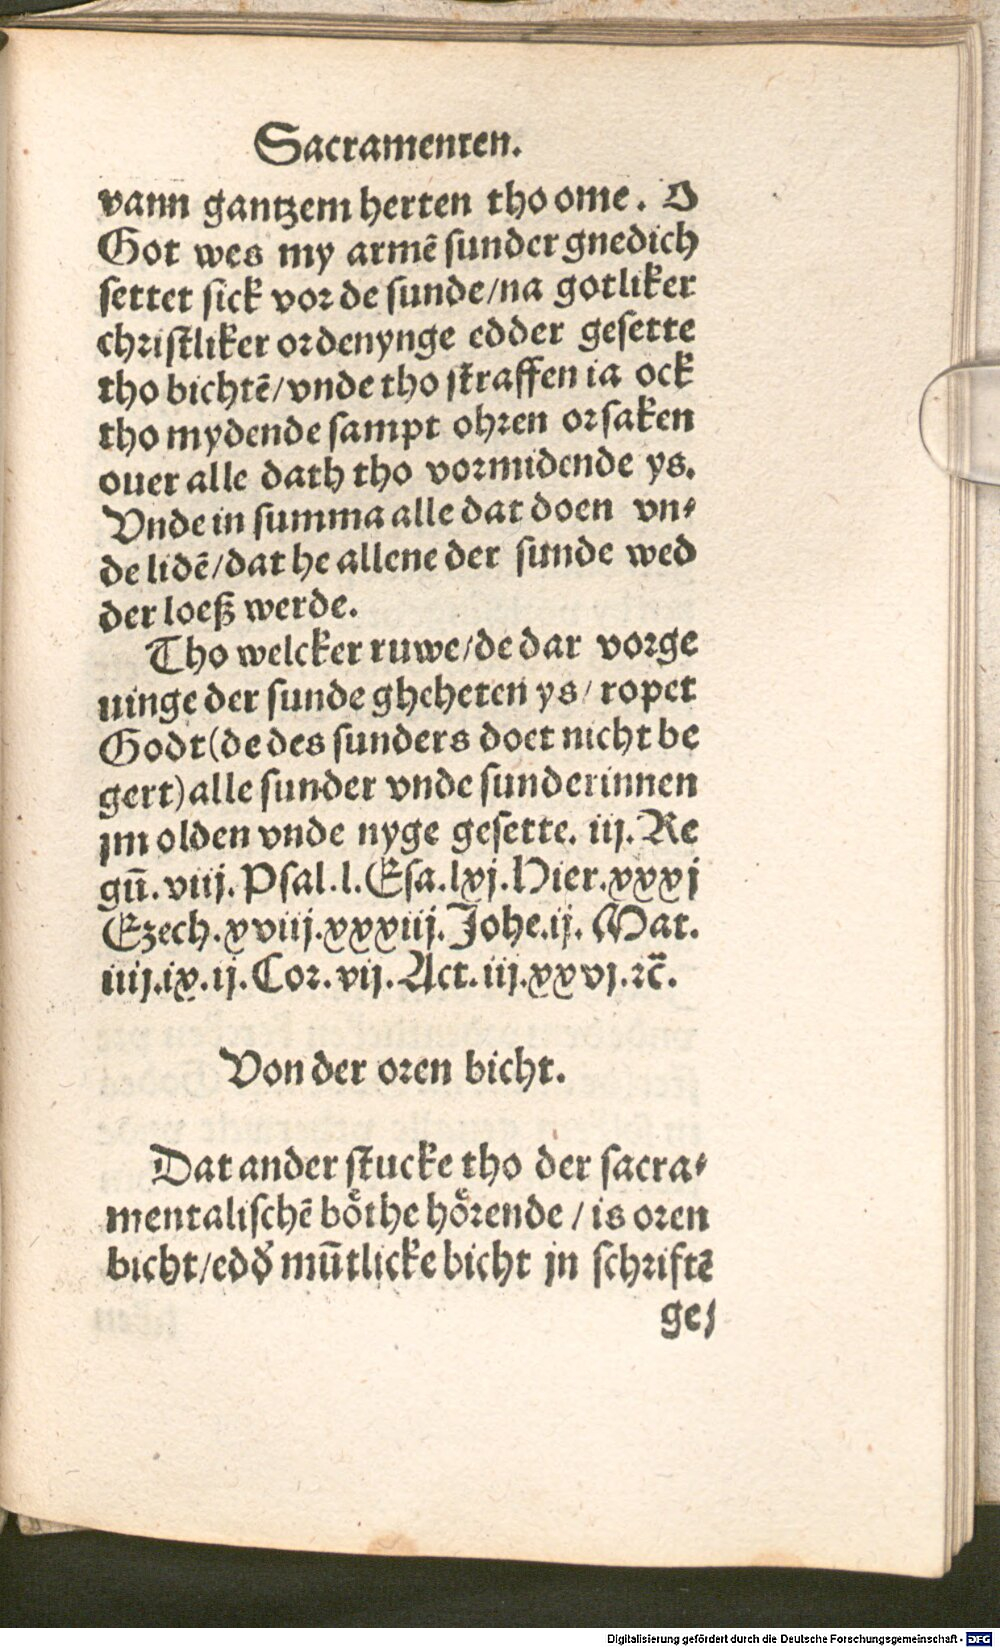 Sacramenten.
vann gantzem herten tho ome. O
Got wes my armē sunder gnedich
settet sick vor de sunde/na gotliker
christliker ordenynge edder gesette
tho bichtē/vnde tho straffen ia ock
tho mydende sampt ohren orsaken
ouer alle dath tho vormidende ys.
Vnde in summa alle dat doen vn⸗
de lidē/dat he allene der sunde wed
der loeß werde.
Tho welcker ruwe/de dar vorge
uinge der sunde gheheten ys/ ropet
Godt(de des sunders doet nicht be
gert)alle sunder vnde sunderinnen
jm olden vnde nyge gesette. iij. Re
gū. viij. Psal. l. Esa. lxj. Hier. xxxj
Ezech. xviij. xxxiij. Johe. ij. Mat.
iiij. ix. ij. Cor. vij. Act. iij. xxvj. ꝛc̄.
Von der oren bicht.
Dat ander stucke tho der sacra⸗
mentalischē boͤthe hoͤrende / is oren
bicht/edď mūtlicke bicht jn schriftē
ge⸗
Digitalisierung gefördert durch die Deutsche Forschungsgemeinschaft - DFG